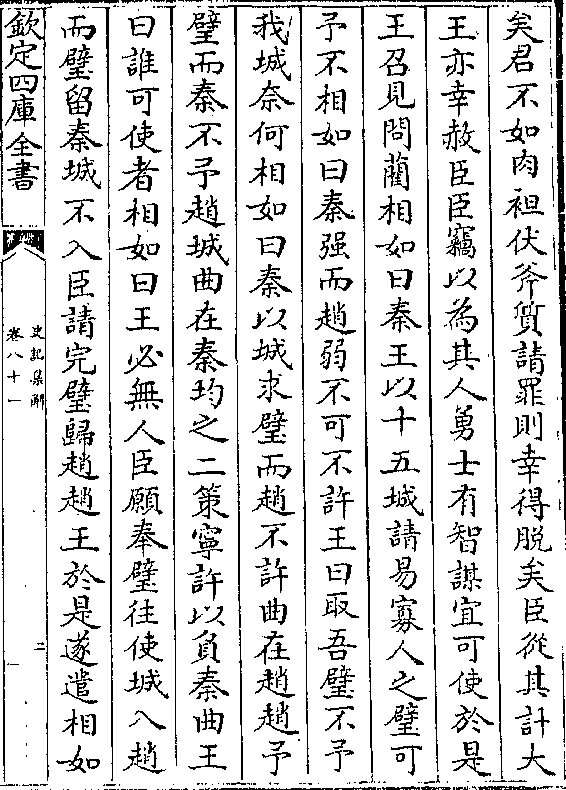 矣君不如肉袒伏斧質請罪則幸得脫矣臣從其計大
王亦幸赦臣臣竊以為其人勇士有智謀宜可使於是
王召見問藺相如曰秦王以十五城請易寡人之璧可
予不相如曰秦强而趙弱不可不許王曰取吾璧不予
我城奈何相如曰秦以城求璧而趙不許曲在趙趙予
璧而秦不予趙城曲在秦均之二策寧許以負秦曲王
曰誰可使者相如曰王必無人臣願奉璧往使城入趙
而璧留秦城不入臣請完璧歸趙趙王於是遂遣相如
欽定四庫全書
史記集解
卷八十一
二